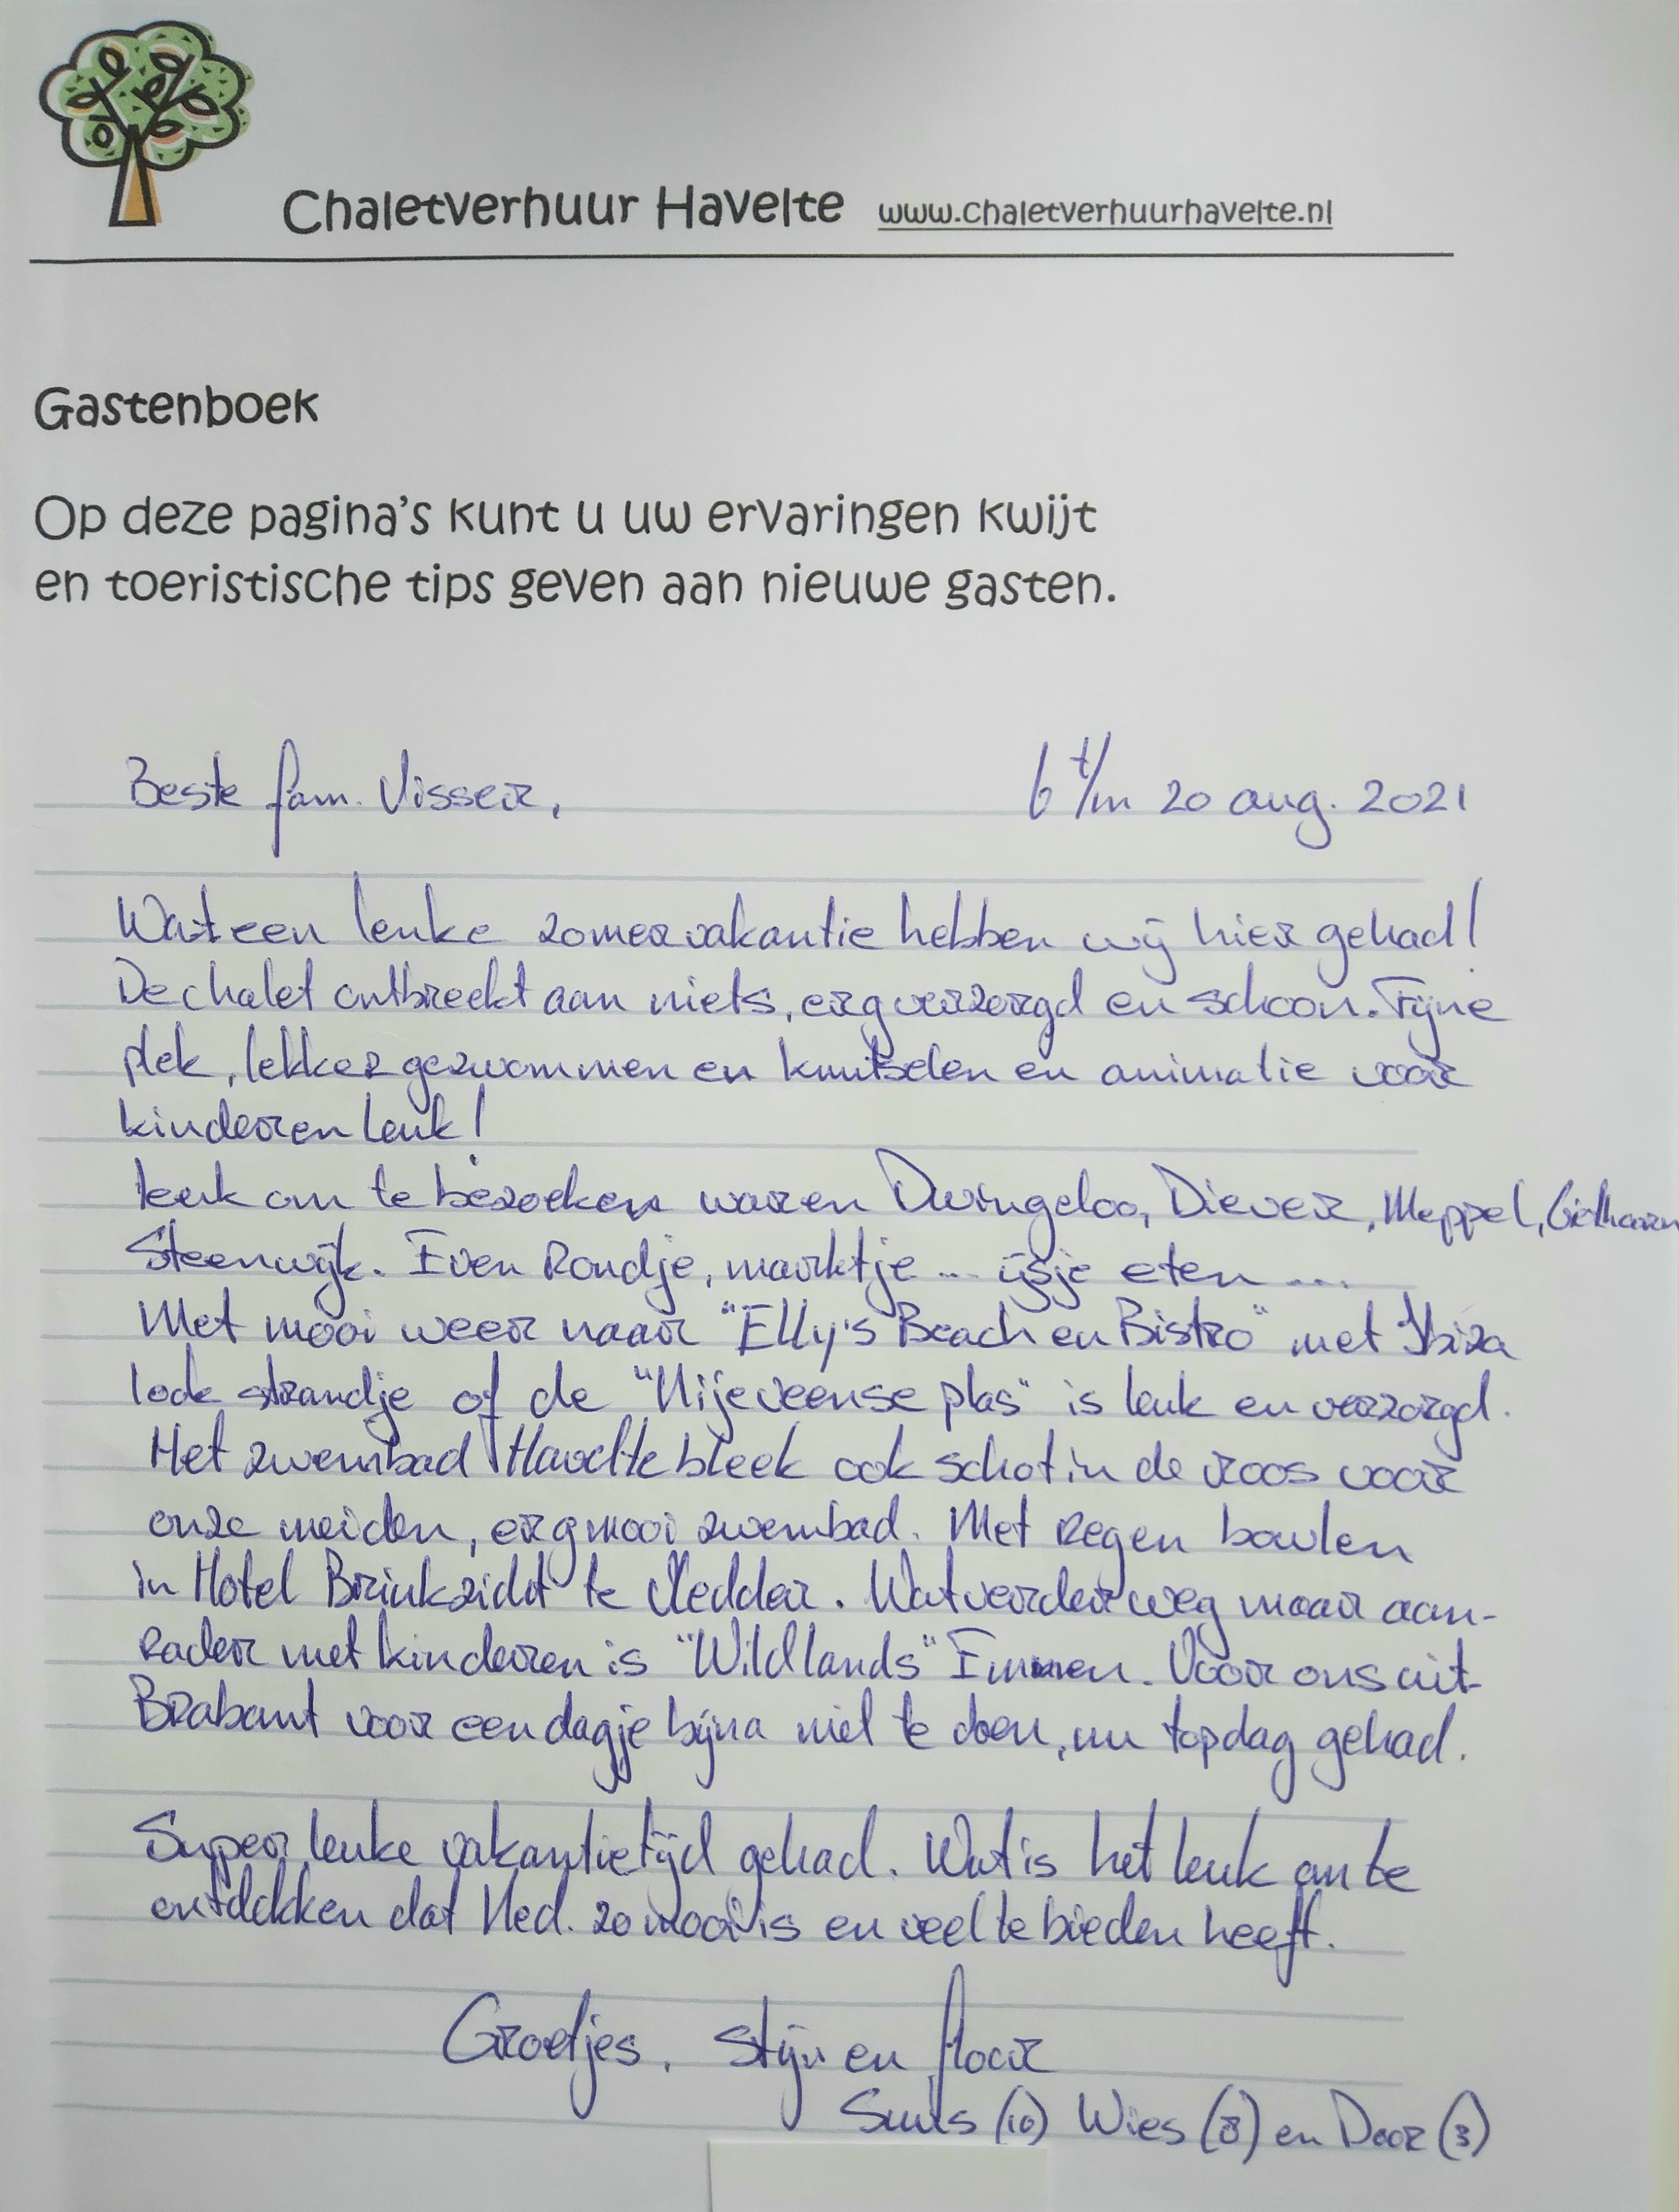 Chaletverhuur Havelte www.chaletverhuurhavelte.nl
Gastenboek
Op deze pagina's kunt u uw ervaringen kwijt
en toeristische tips geven aan nieuwe gasten.
Beste fam. Visser, 6 t/m 20 aug. 2021
Wat een leuke zomervakantie hebben wij hier gehad!
De chalet ontbreekt aan niets, erg verzorgd en schoon. Fijne
plek, lekker gezwommen en knutselen en animatie voor
kinderen leuk!
leuk om te bezoeken waren Dwingeloo, Diever, Meppel, Giethoorn
Steenwijk. Even Rondje, marktje ... ijsje eten ...
Met mooi weer naar "Elly's Beach en Bistro" met Ibiza
look strandje of de "Nijeveense plas" is leuk en verzorgd.
Het zwembad Havelte bleek ook schot in de roos voor
onze meiden, erg mooi zwembad. Met regen bowlen
in Hotel Brinkzicht te Vledder. Wat verder weg maar aan-
rader met kinderen is "Wildlands" Emmen. Voor ons uit
Brabant voor een dagje bijna niet te doen, nu topdag gehad.
Super leuke vakantietijd gehad. Wat is het leuk om te
ontdekken dat Ned. zo mooi is en veel te bieden heeft.
Groetjes, Stijn en floor
(10) Wies (8) en Door (3)